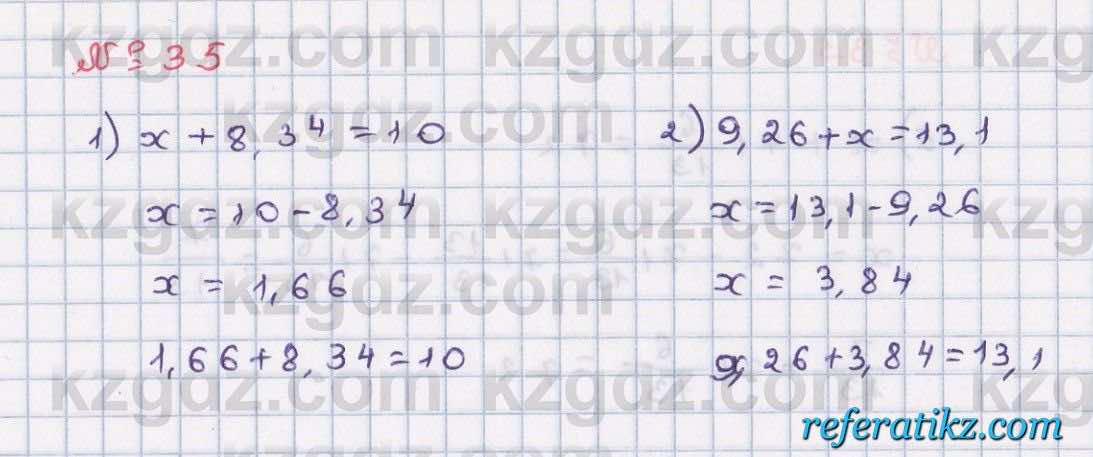 № 35
1) x + 8,34 = 10
x = 10 - 8,34
x = 1,66
1,66 + 8,34 = 10
2) 9,26 + x = 13,1
x = 13,1 - 9,26
x = 3,84
9,26 + 3,84 = 13,1
kzgdz.com kzgdz.com kzgdz.com
kzgdz.com
kzgdz.com kzgdz.com kzgdz.com
kzgdz.com
kzgdz.com kzgdz.com kzgdz.com
referatikz.com